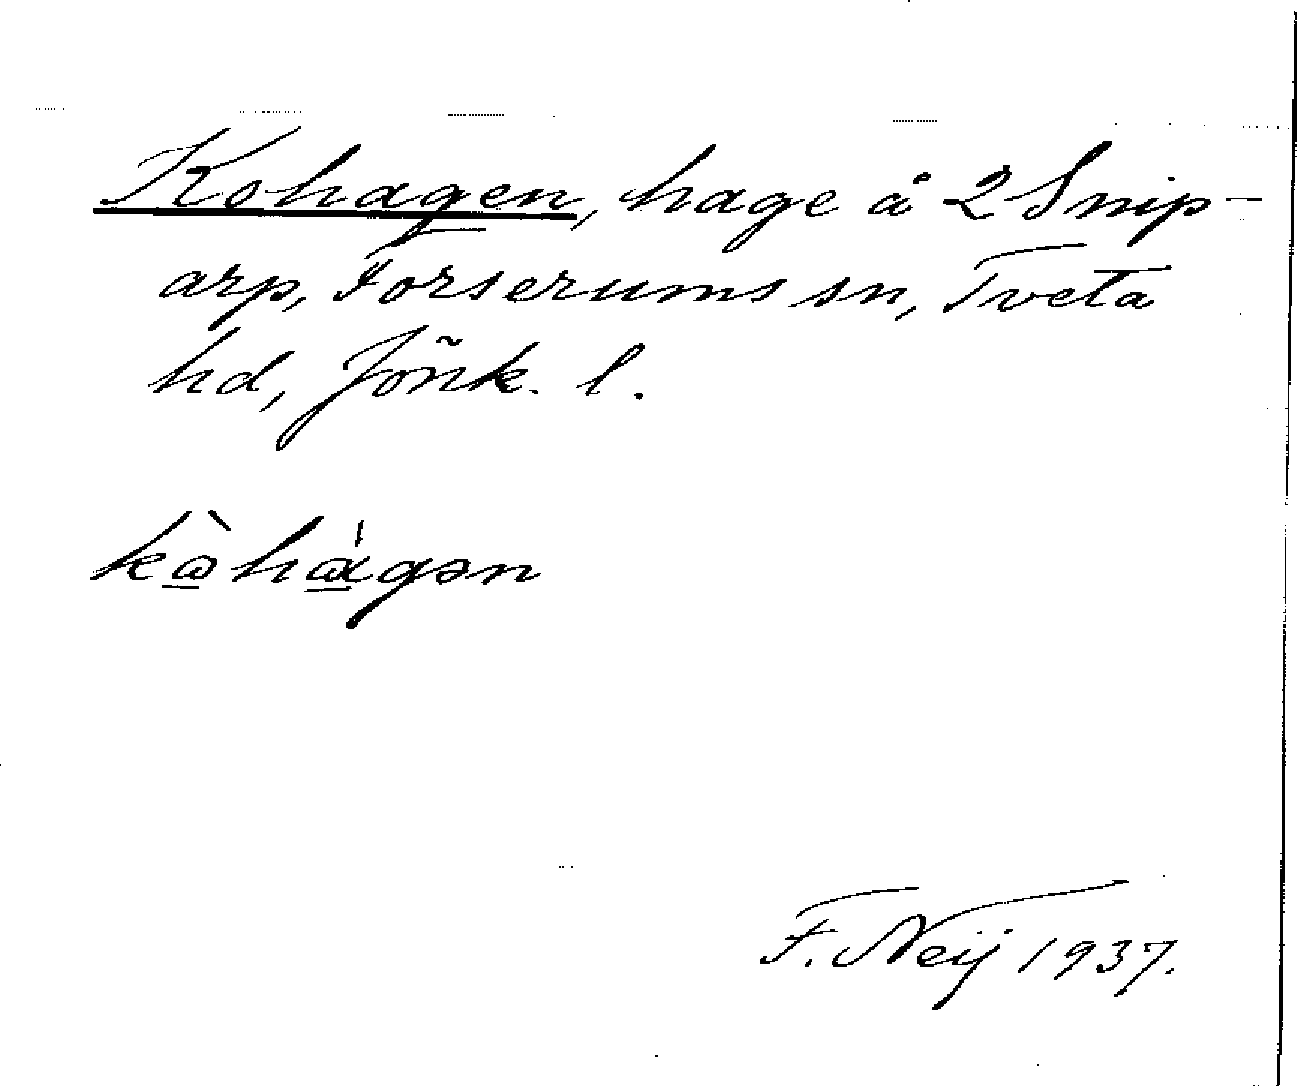 Kohagen, hage å 2 Snip-
arp, Forserums sn, Tveta
hd, Jönk. l.
kὼ̲hά̲gən
F. Neij 1937.